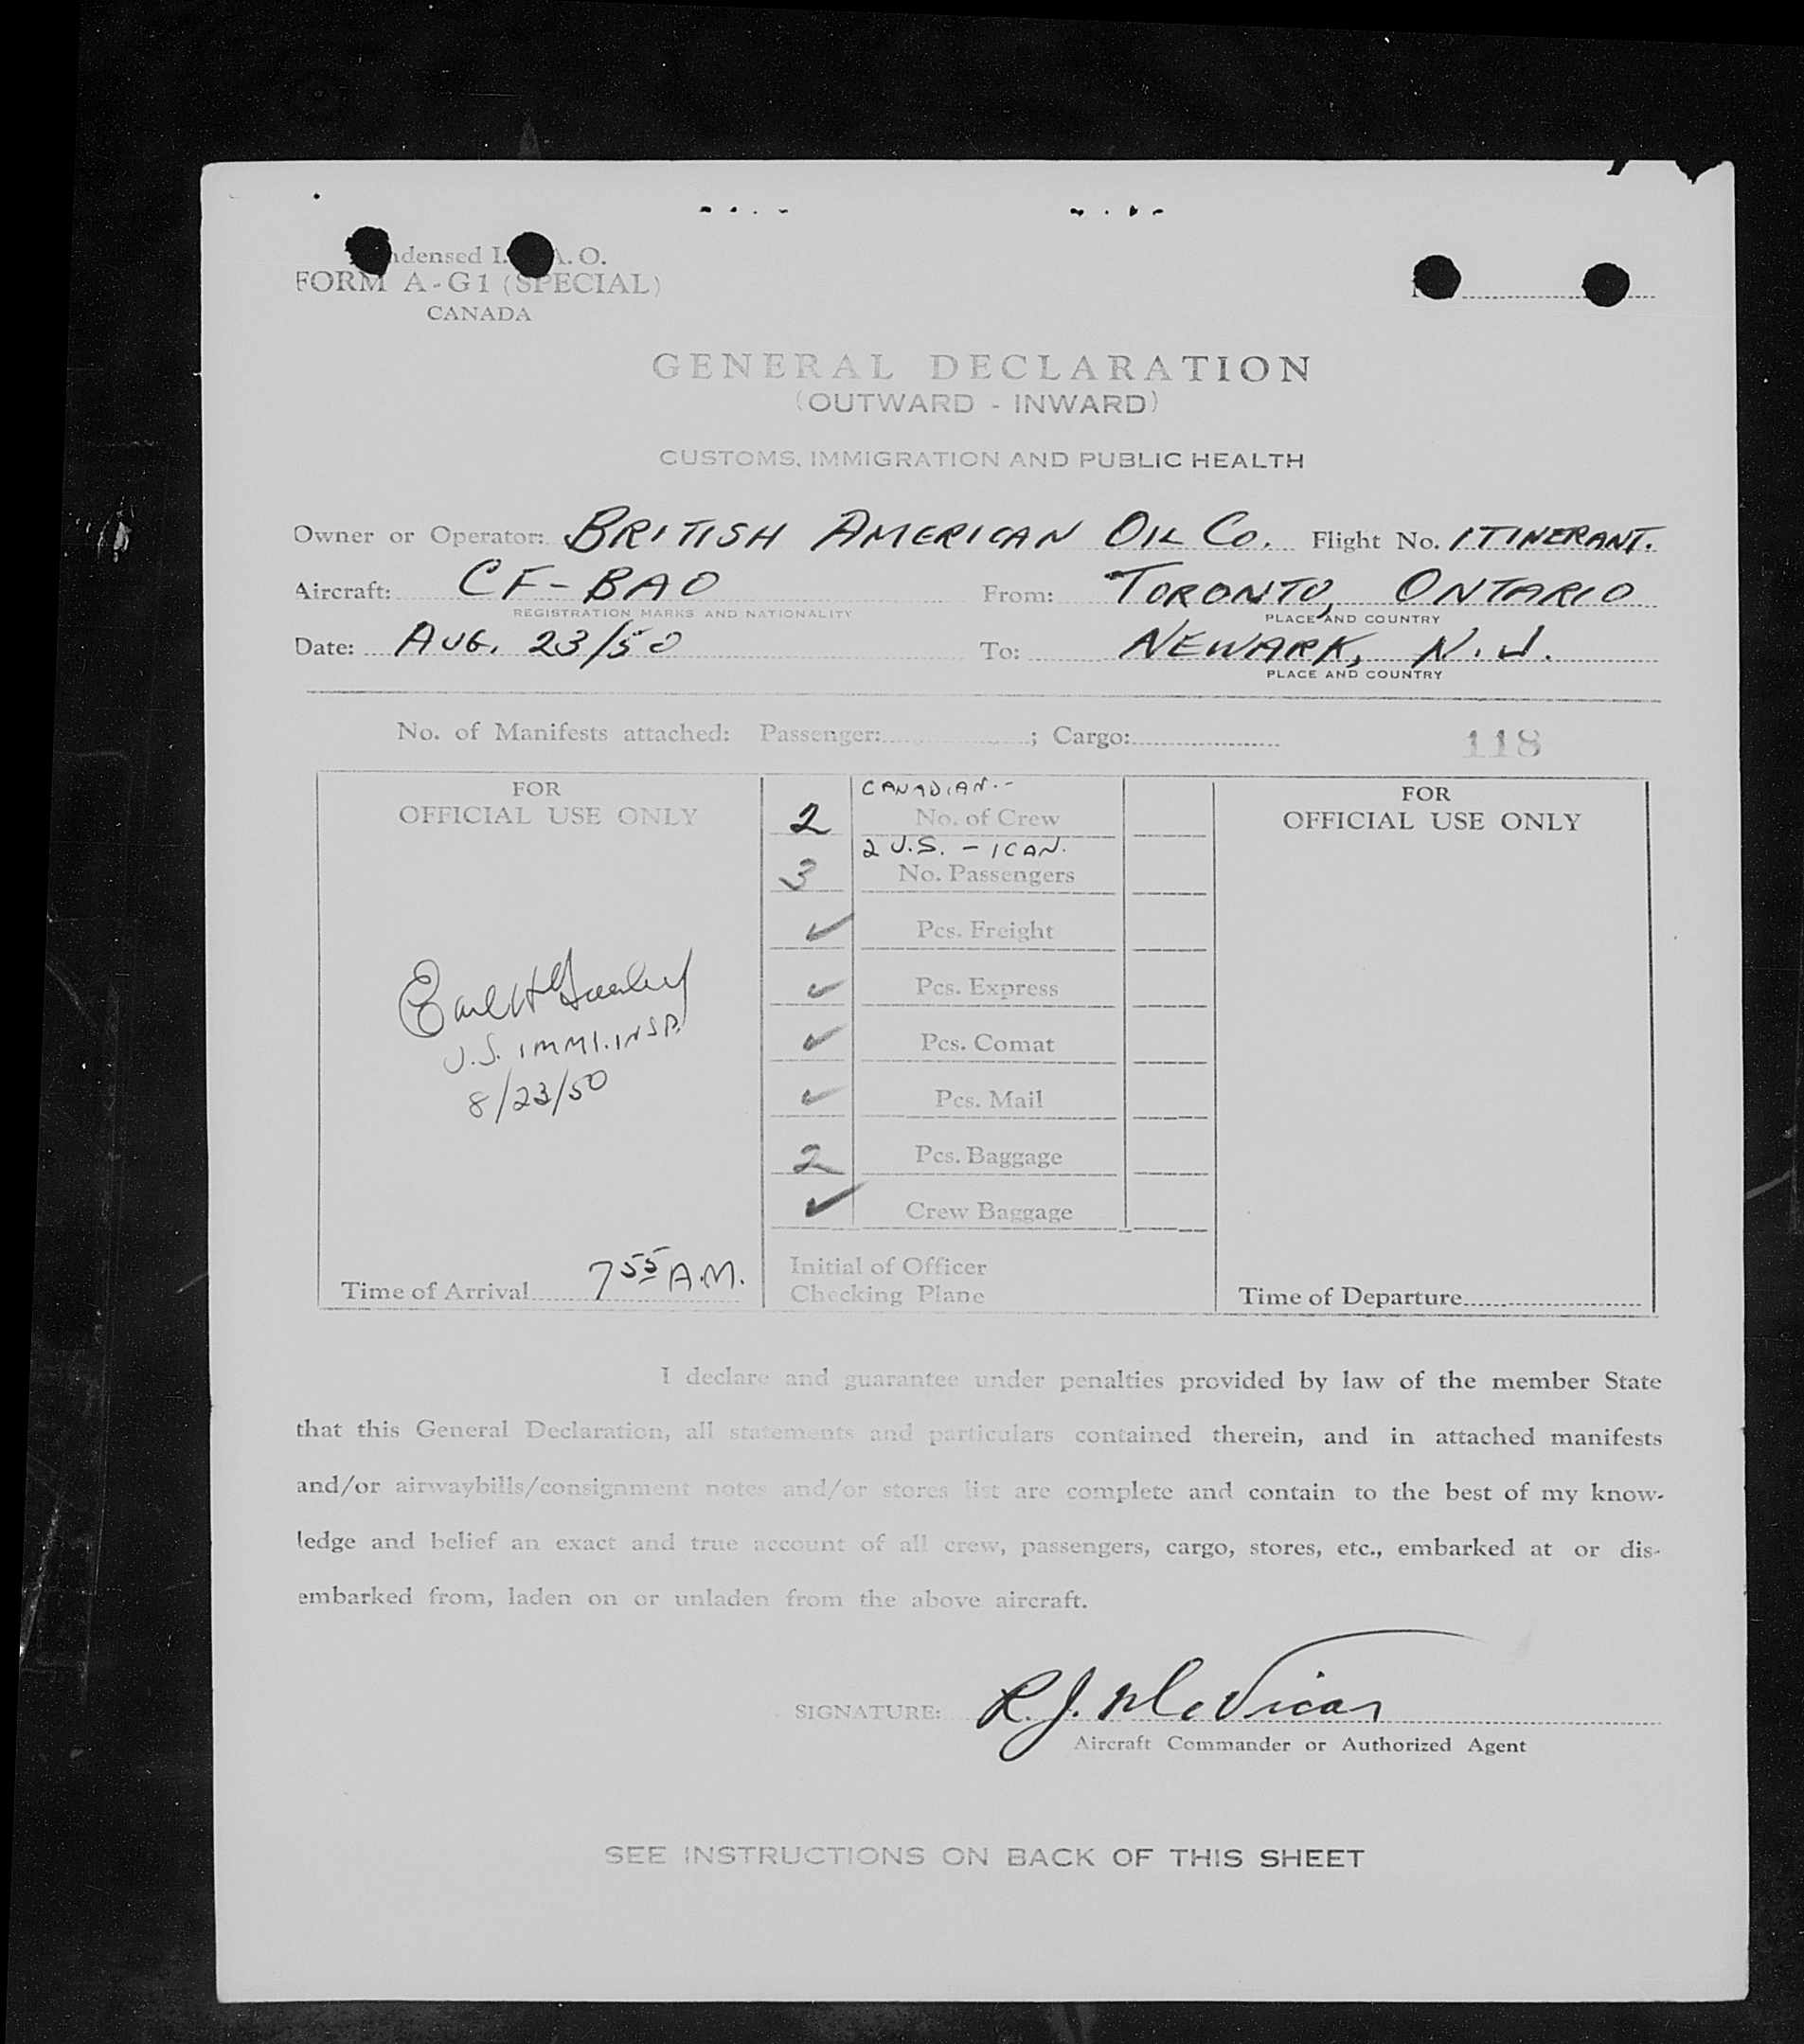 FORM A-G1 (SPECIAL)
CANADA
GENERAL DECLARATION
(OUTWARD - INWARD)
CUSTOMS, IMMIGRATION AND PUBLIC HEALTH
Owner or Operator: BRITISH AMERICAN OIL CO. Flight No. ITINERANT.
Aircraft: CF-BAO From: TORONTO, ONTARIO
REGISTRATION MARKS AND NATIONALITY PLACE AND COUNTRY
Date: AUG. 23/50 To: NEWARK, N.J.
PLACE AND COUNTRY
No. of Manifests attached: Passenger: ; Cargo:
118
FOR
OFFICIAL USE ONLY
U.S. IMMI. INSP.
8/23/50
Time of Arrival 7 55 A.M.
CANADIAN.-
2 No. of Crew
2 U.S. - 1 CAN.
3 No. Passengers
✓ Pcs. Freight
✓ Pcs. Express
✓ Pcs. Comat
✓ Pcs. Mail
2 Pcs. Baggage
✓ Crew Baggage
Initial of Officer
Checking Plane
FOR
OFFICIAL USE ONLY
Time of Departure
I declare and guarantee under penalties provided by law of the member State
that this General Declaration, all statements and particulars contained therein, and in attached manifests
and/or airwaybills/consignment notes and/or stores list are complete and contain to the best of my know-
ledge and belief an exact and true account of all crew, passengers, cargo, stores, etc., embarked at or dis-
embarked from, laden on or unladen from the above aircraft.
SIGNATURE: R. J. McVicar
Aircraft Commander or Authorized Agent
SEE INSTRUCTIONS ON BACK OF THIS SHEET